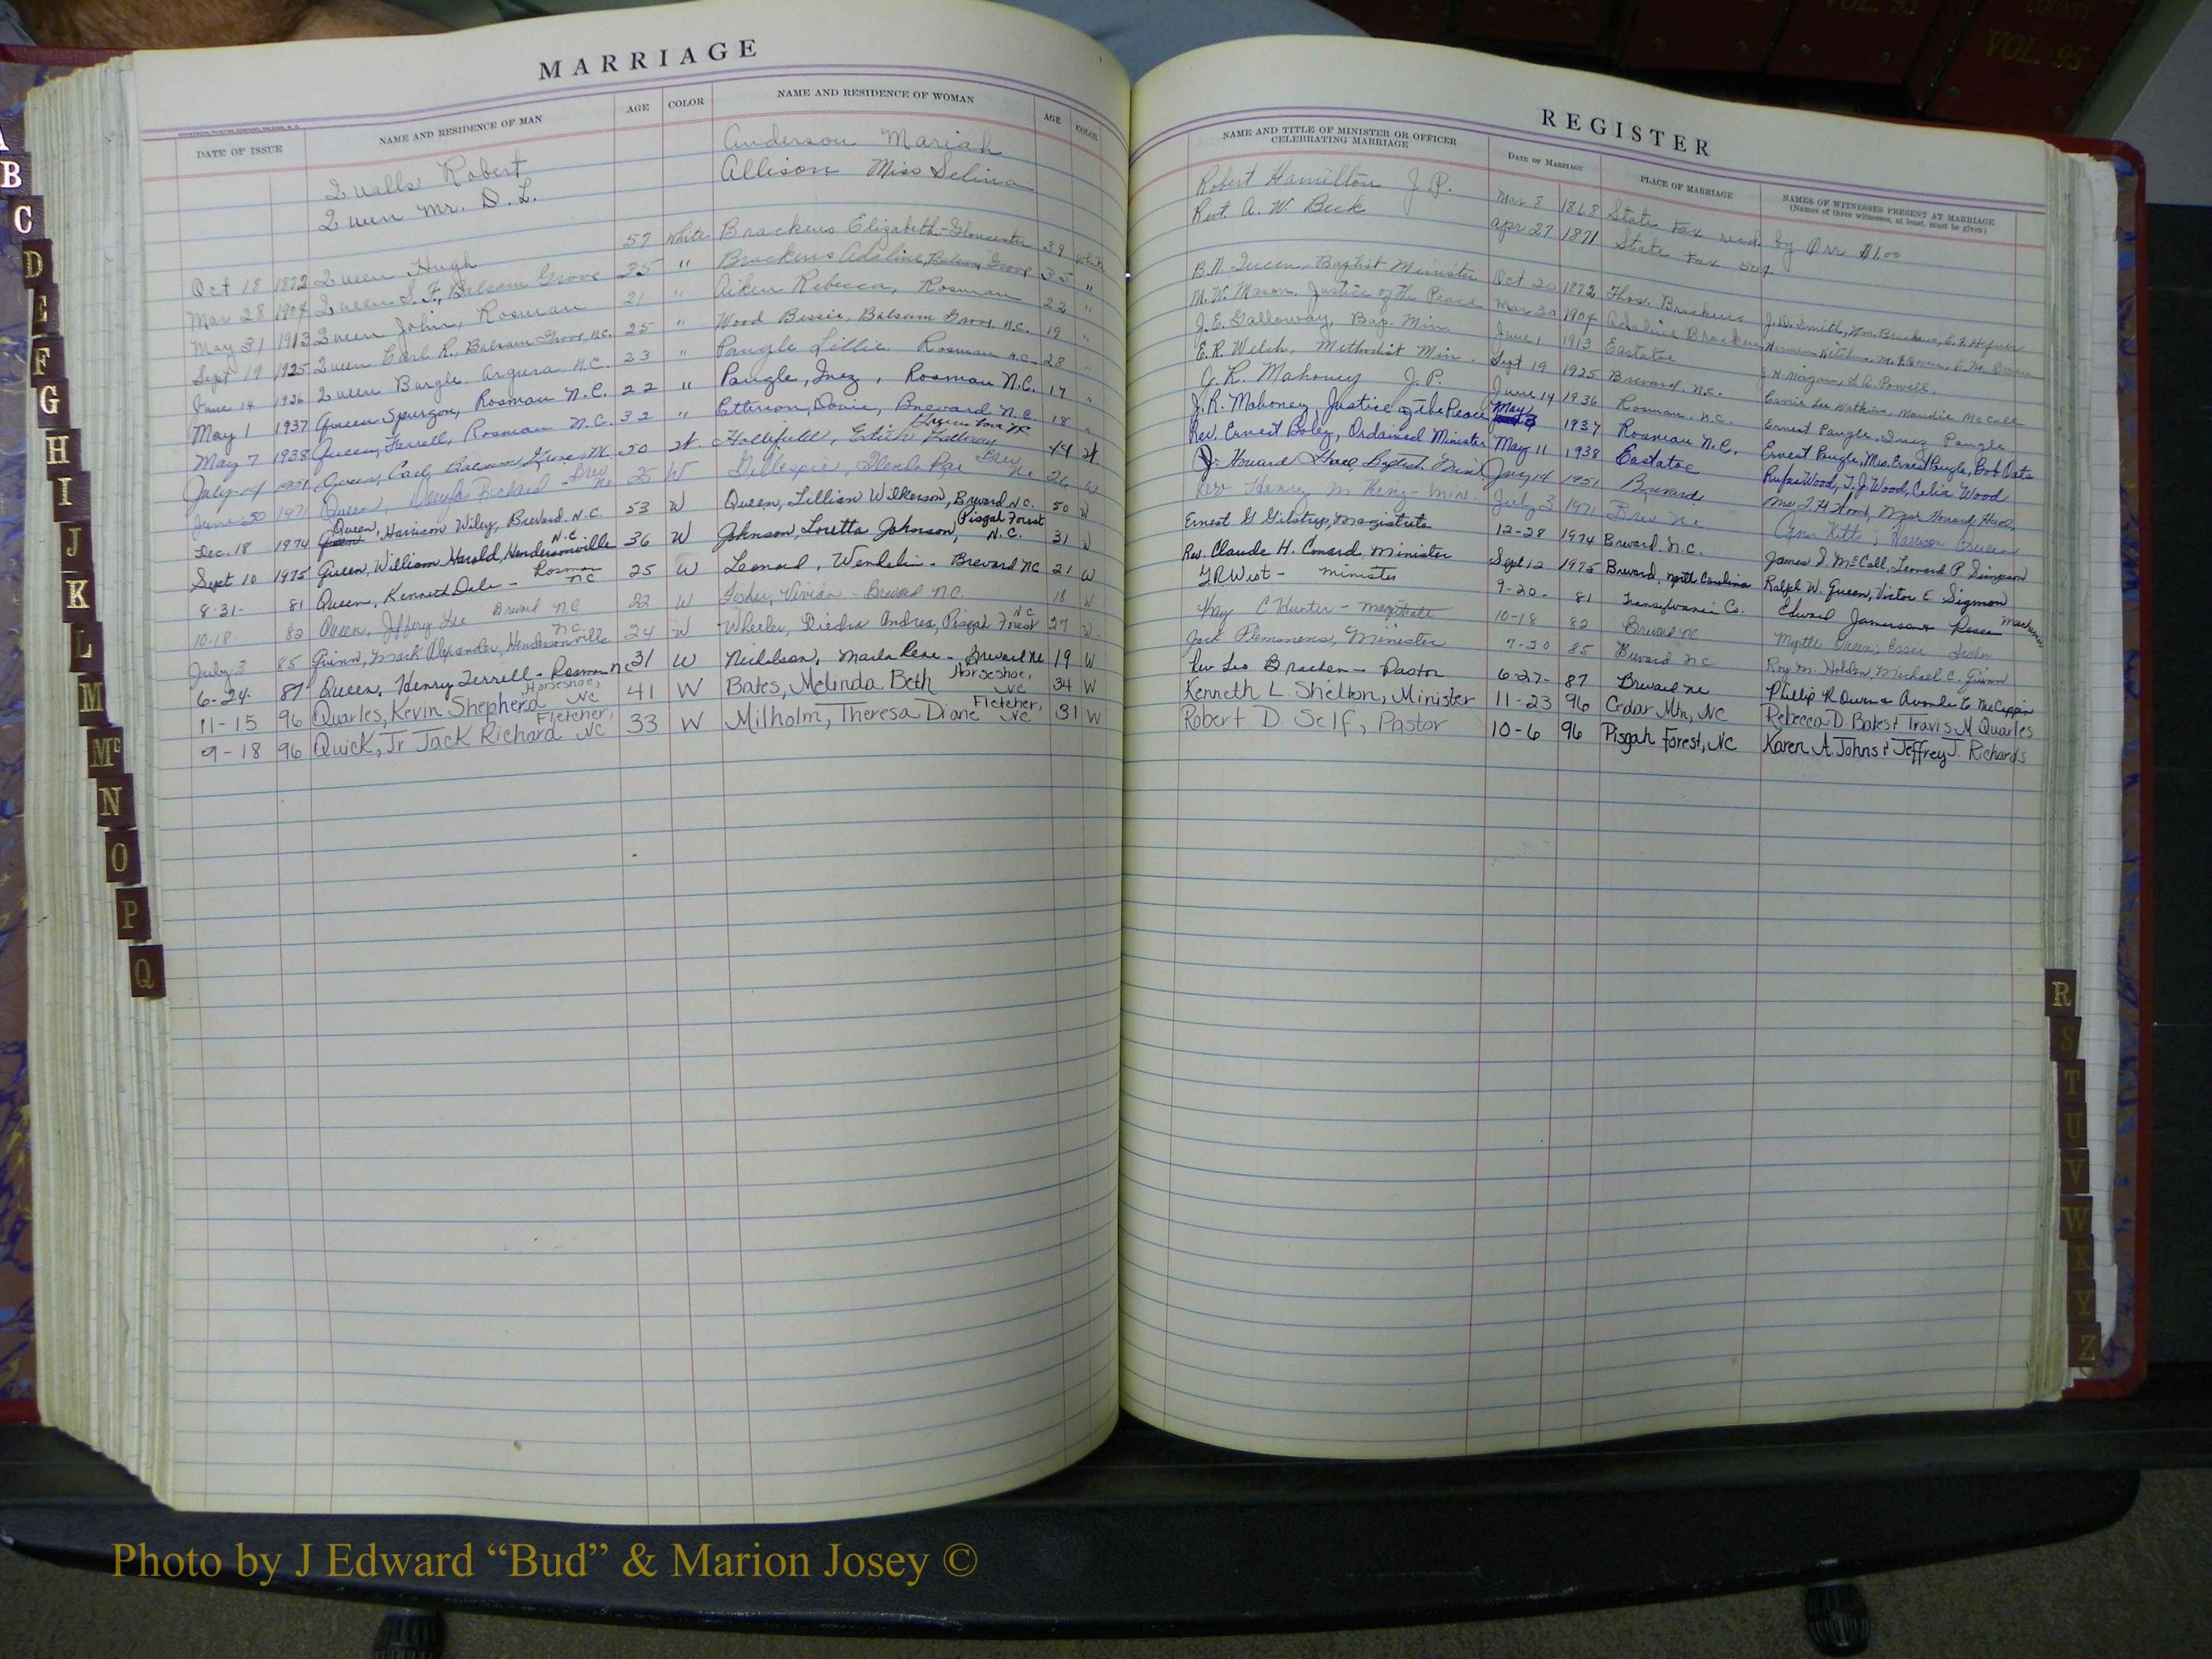 MARRIAGE
DATE OF ISSUE NAME AND RESIDENCE OF MAN AGE COLOR NAME AND RESIDENCE OF WOMAN AGE COLOR
Qualls Robert Anderson Mariah
Queen Mr. D. L. Allison Miss Selina
Oct 18 1872 Queen Hugh 57 White Brackens Elizabeth - Gloucester 39 White
Mar 28 1904 Queen S. F., Balsam Grove 35 " Brackens Adaline, Balsam Grove 35 "
May 31 1913 Queen John, Rosman 21 " Aiken Rebecca, Rosman 22 "
Sept 19 1925 Queen Earl R., Balsam Grove, N.C. 25 " Wood Bessie, Balsam Grove, N.C. 19 "
June 14 1936 Queen Burgle. Argura N.C. 23 " Pangle Lillie. Rosman N.C. 28 "
May 1 1937 Queen Spurgon, Rosman N.C. 22 " Pangle, Inez, Rosman N.C. 17 "
May 7 1938 Queen, Farrell, Rosman N.C. 32 " Patterson, Dovie, Brevard N.C. 18 "
July 14 1951 Queen, Carl, Balsam Grove 50 Hollifield, Edith Galloway 44
June 30 1971 Queen, Richard - Brev NC 25 W Gillespie, Glenda Rae Brev NC 26 W
Dec. 18 1974 Queen, Harrison Wiley, Brevard N.C. 53 W Queen, Lillian Wilkerson, Brevard N.C. 50 W
Sept 10 1975 Queen, William Harold, Hendersonville N.C. 36 W Johnson, Loretta Johnson, Pisgah Forest N.C. 31 W
8-31- 81 Queen, Kenneth Dale - Rosman NC 25 W Leonard, Wendelin - Brevard NC 21 W
10-18- 82 Queen, Jeffery Lee Brevard NC 22 W Fisher, Vivian - Brevard N.C. 18 W
July 3 85 Quinn, Mark Alexander, Hendersonville NC. 24 W Wheeler, Diedra Andrea, Pisgah Forest NC 27 W
6-24- 87 Queen, Henry Terrell - Rosman NC 31 W Nicholson, Marla Rene - Brevard NC 19 W
11-15 96 Quarles, Kevin Shepherd Horseshoe, NC 41 W Bates, Melinda Beth Horseshoe, NC 34 W
9-18 96 Quick, Jr Jack Richard Fletcher, NC 33 W Milholm, Theresa Diane Fletcher, NC 31 W
REGISTER
NAME AND TITLE OF MINISTER OR OFFICER CELEBRATING MARRIAGE DATE OF MARRIAGE PLACE OF MARRIAGE NAMES OF WITNESSES PRESENT AT MARRIAGE
(Names of three witnesses, at least, must be given)
Robert Hamilton J.P. Mar 8 1868 State Tax recd. by Orr $1.00
Revt. A. W. Beck Apr 27 1871 State Tax 50¢
B. N. Queen, Baptist Minister Oct 20 1872 Thos. Brackens J. D. Smith, Wm. Brackens,
M. W. Mason, Justice of the Peace Mar 30 1904 Adaline Bracken
J. E. Galloway, Bap. Min. June 1 1913 Eastatoe J. H. Morgan, L. A. Powell.
E. R. Welch, Methodist Min. Sept 19 1925 Brevard, N.C. Carrie Lee Watkins, Maudie McCall
J. R. Mahoney J.P. June 14 1936 Rosman, N.C. Ernest Pangle, Inez Pangle
J. R. Mahoney Justice of the Peace May 1937 Rosman N.C. Ernest Pangle, Mrs. Ernest Pangle, Bob Oats
Rev. Ernest Boley, Ordained Minister May 11 1938 Eastatoe Rufus Wood, T. J. Wood, Celia Wood
J. Howard Hall, Baptist Mini. July 14 1951 Brevard Mrs. T. H. Wood, Mrs. Howard Hall
Rev Henry M King - Min. July 3 1971 Brev NC
Ernest G Gilstrap, Magistrate 12-28 1974 Brevard. N.C. James S. McCall, Leonard P. Simpson
Rev. Claude H. Conard, Minister Sept 12 1975 Brevard, North Carolina Ralph W. Queen, Victor E. Sigmon
T R West - minister 9-20- 81 Transylvania Co. Edward Jameson
Kay C Hunter - magistrate 10-18 82 Brevard NC Myrtle Queen, Essie Fisher
Jack Plemmons, Minister 7-20 85 Brevard NC Roy M. Holden, Michael C. Quinn
Rev Leo Bracken - Pastor 6-27- 87 Brevard NC
Kenneth L. Shelton, Minister 11-23 96 Cedar Mtn, NC Rebecca D. Bates & Travis M Quarles
Robert D. Self, Pastor 10-6 96 Pisgah Forest, NC Karen A Johns & Jeffrey J. Richards
B
C
D
E
F
G
H
I
J
K
L
M
Mc
N
O
P
Q
R
S
T
U
V
W
X
Y
Z
VOL. 95
Photo by J Edward “Bud” & Marion Josey ©